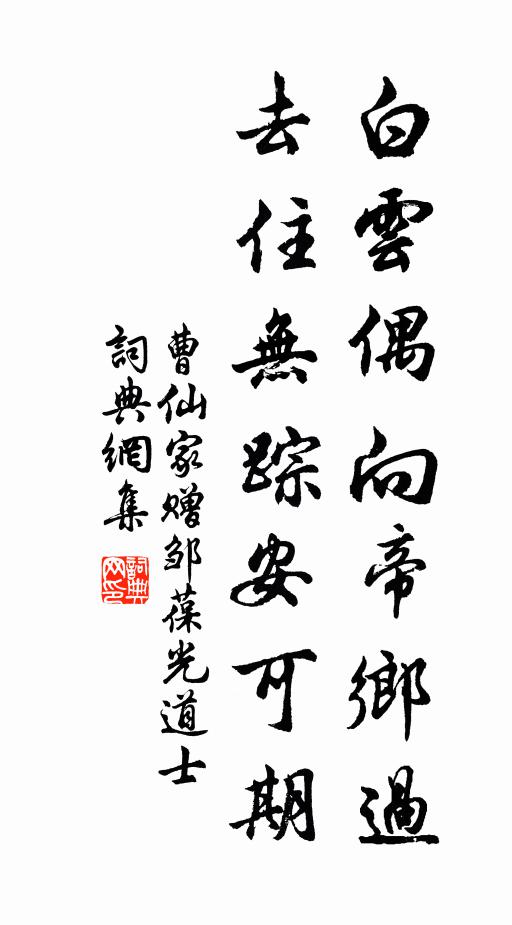 白雲偶向帝鄉過
去住無踪安可期
曹仙家贈邹葆光道士
詞典網集
詞典网印